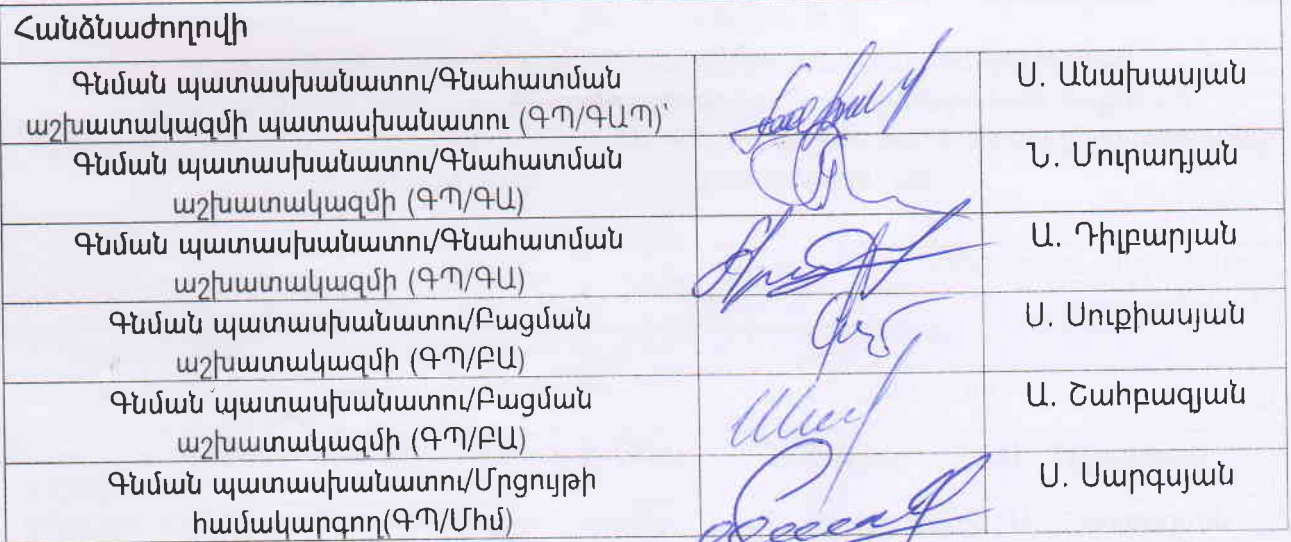 Հանձնաժողովի
Գնման պատասխանատու/Գնահատման
աշխատակազմի պատասխանատու (ԳՊ/ԳԱՊ)՝
Ս. Անախասյան
Գնման պատասխանատու/Գնահատման
աշխատակազմի (ԳՊ/ԳԱ)
Ն. Մուրադյան
Գնման պատասխանատու/Գնահատման
աշխատակազմի (ԳՊ/ԳԱ)
Ա. Դիլբարյան
Գնման պատասխանատու/Բացման
աշխատակազմի (ԳՊ/ԲԱ)
Ս. Սուքիասյան
Գնման պատասխանատու/Բացման
աշխատակազմի (ԳՊ/ԲԱ)
Ա. Շահբազյան
Գնման պատասխանատու/Մրցույթի
համակարգող(ԳՊ/Մհմ)
Ս. Սարգսյան